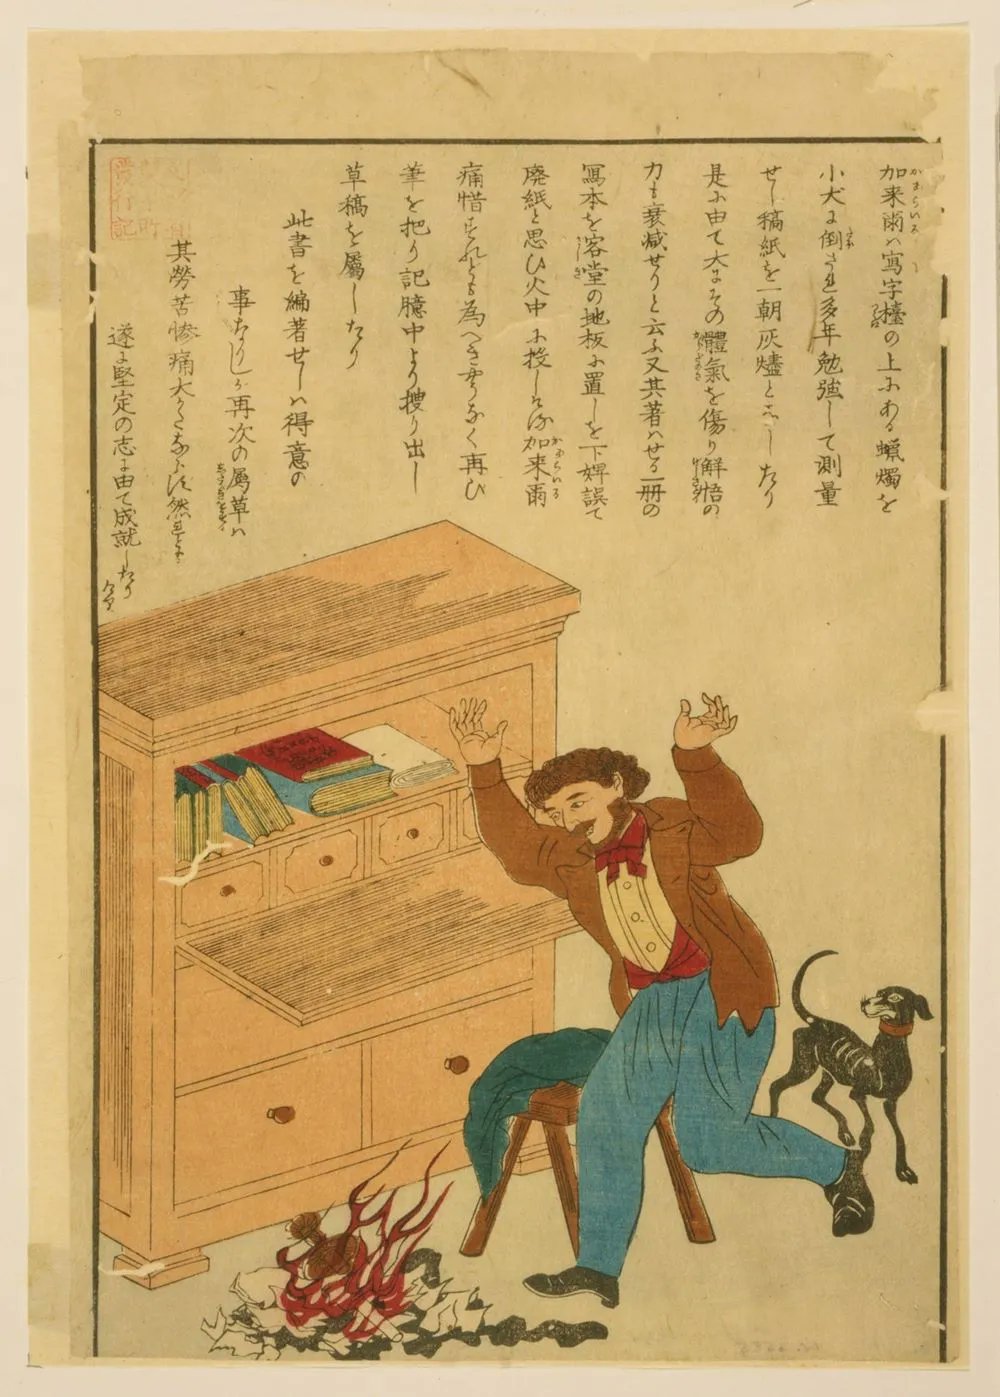 加来雨ハ寫字檯の上にある蝋燭を
小犬に倒され多年勉強して測量
せし稿紙を一朝灰燼となしたり
是に由て大にその體氣を傷り解悟の
力も衰減せりと云ふ又其著ハせる一冊の
寫本を客堂の地板に置しを下婢誤て
廃紙と思ひ火中に投しける加来雨
痛惜すれども為へきやうなく再ひ
筆を把り記臆中より捜り出し
草稿を屬したり
此書を編著せしハ得意の
事なりしが再次の属草ハ
其勞苦惨痛大かたならず然れども
遂に堅定の志に由て成就したり